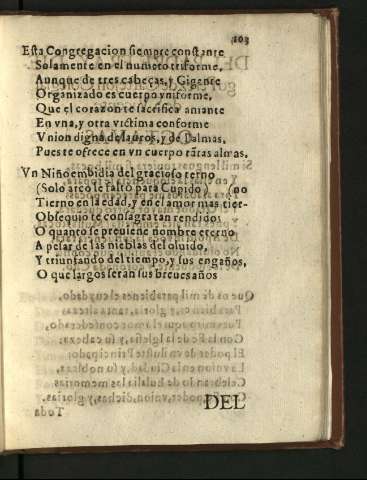 103
Esta Congregacion siempre constante
Solamente en el numero triforme,
Aunque de tres cabeças, y Gigante
Organizado es cuerpo vniforme,
Que el coraçon te sacrifica amante
En vna, y otra victima conforme
Vnion digna de lauros, y de Palmas,
Pues te ofrece en vn cuerpo tātas almas.
Vn Niño embidia del gracioso terno
(Solo arco le faltò para Cupido) (no
Tierno en la edad, y en el amor mas tier-
Obsequio te consagra tan rendido:
O quanto se preuiene nombre eterno
A pesar de las nieblas del oluido,
Y triunfando del tiempo, y sus engaños,
O que largos seràn sus breues años
DEL